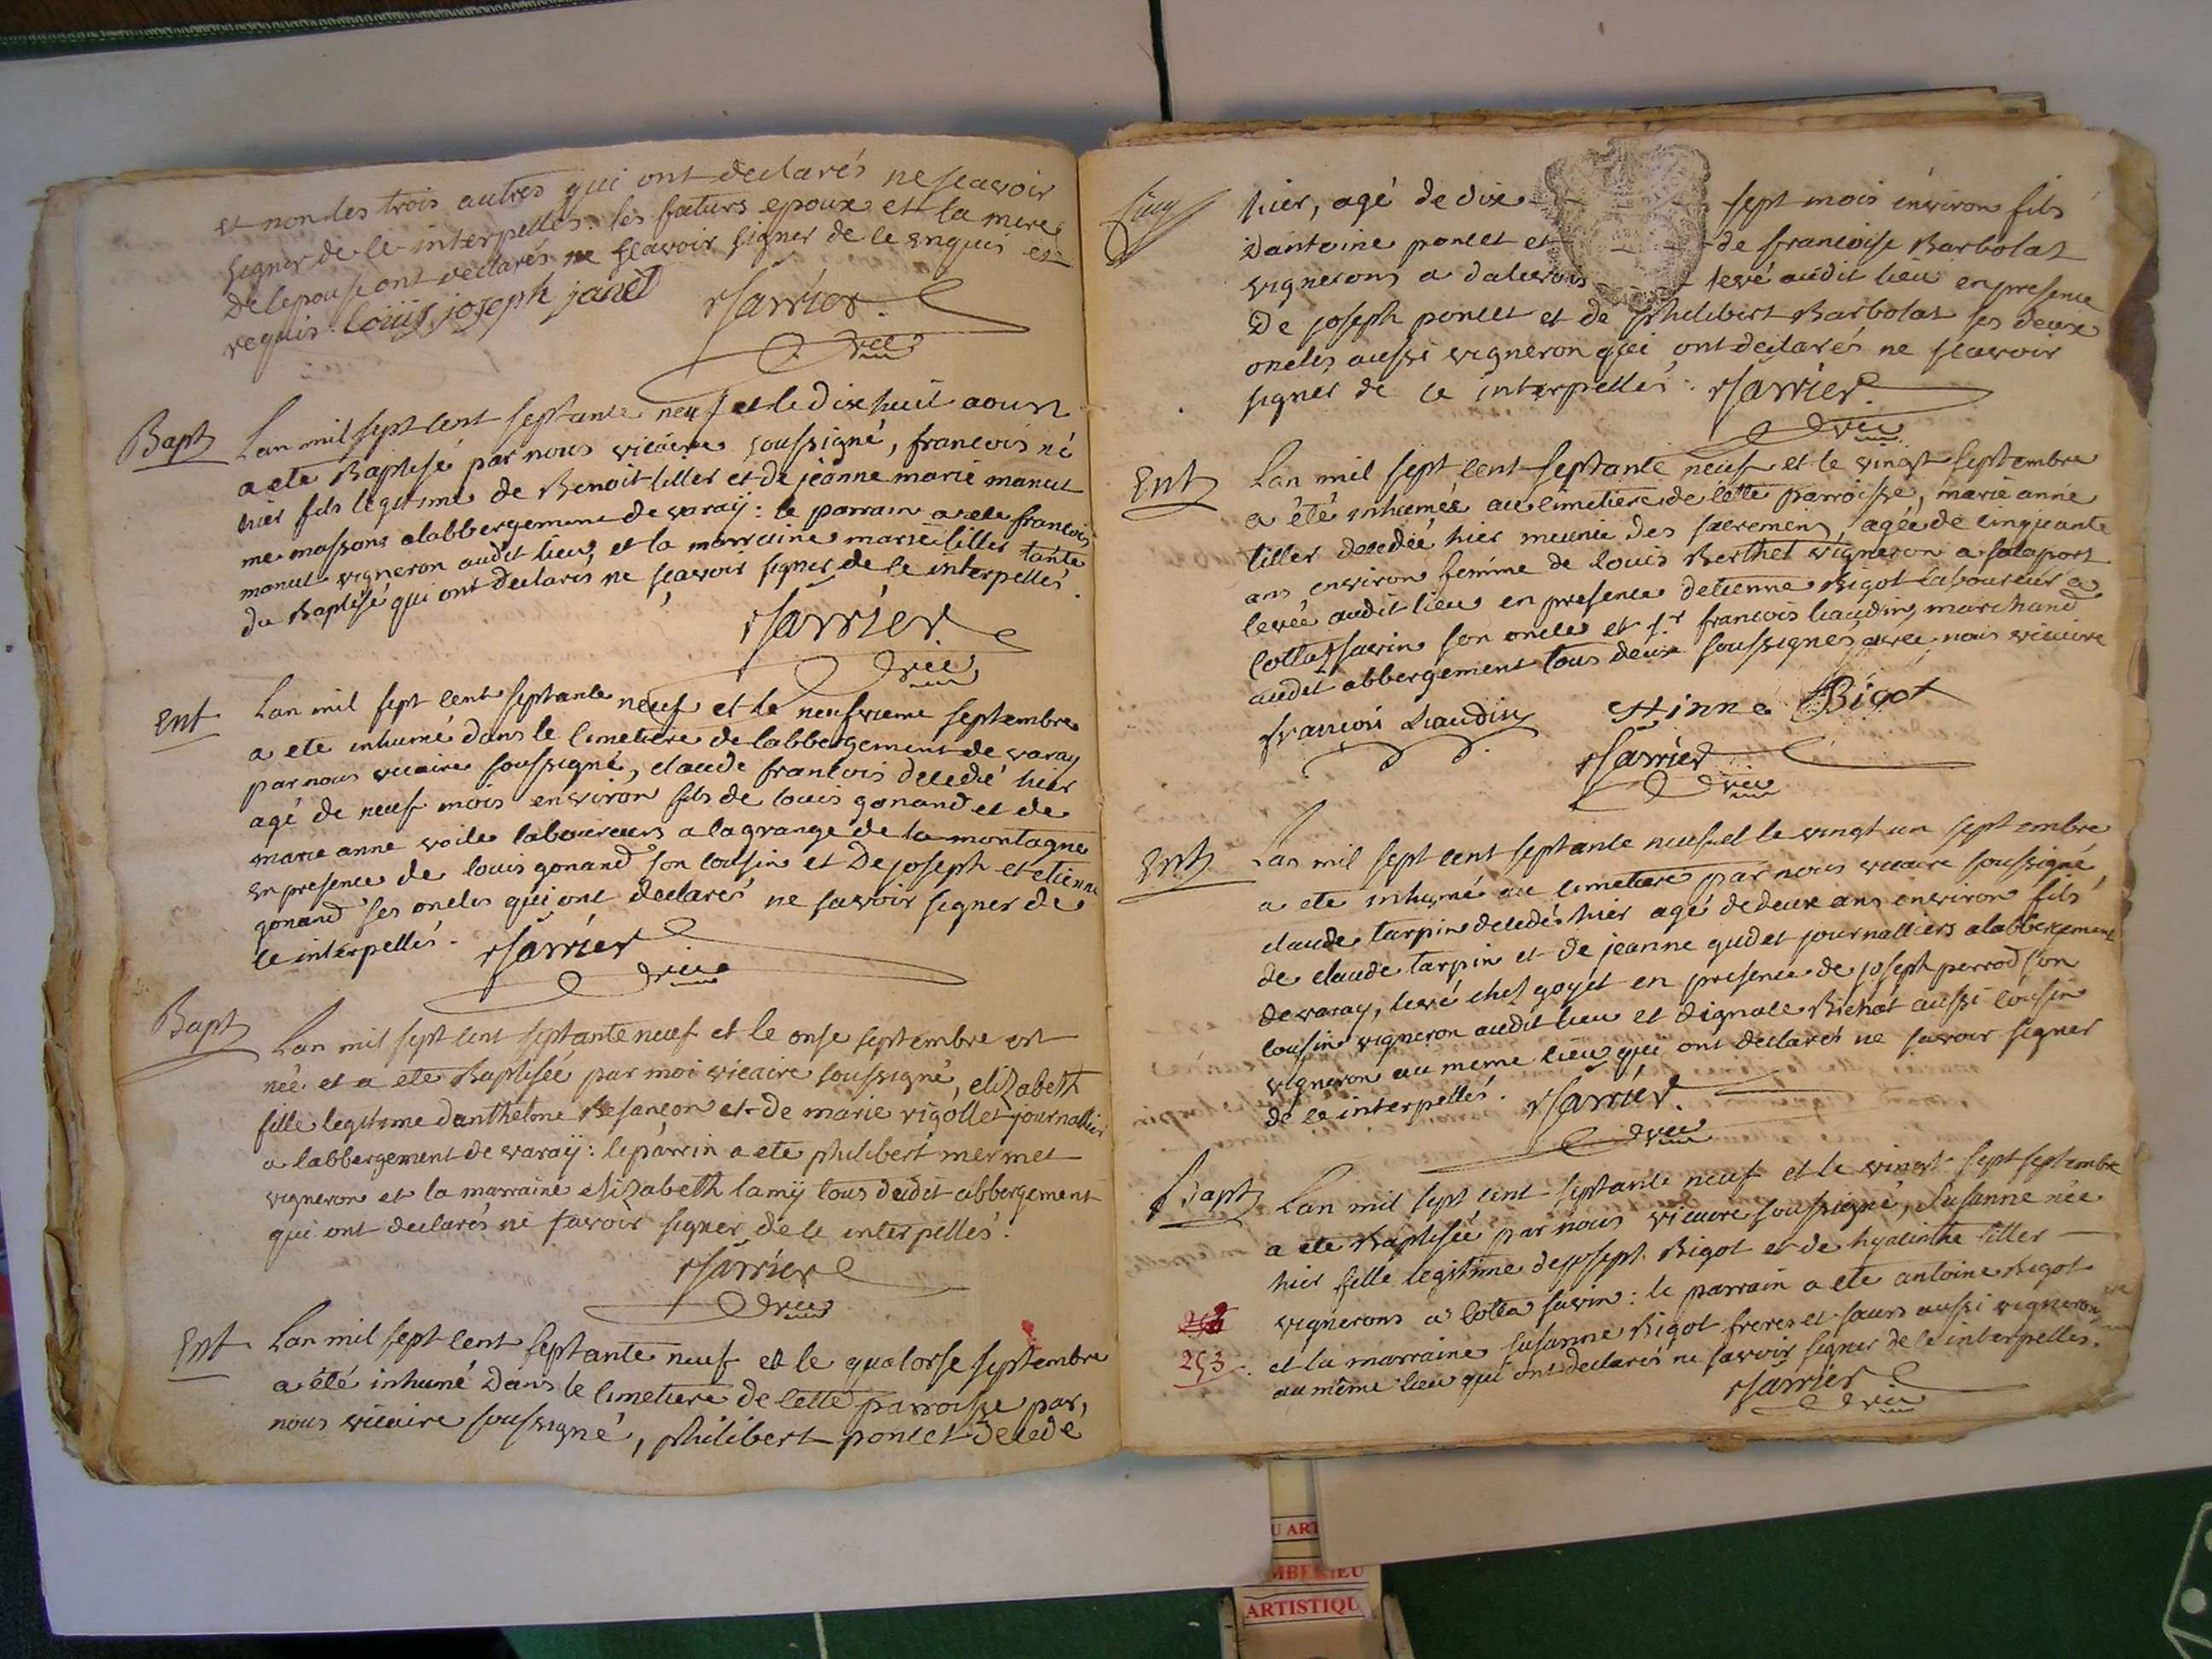 et non les trois autres qui ont declarés ne scavoir
signer de ce interpellés. les futurs epoux et la mere
de lepouse ont declarés ne scavoir signer de ce enquis et
requis. loüis joseph janet Sarrier
vic
Bapt Lan mil sept cent septante neuf et le dix huit aoust
a ete Baptisé par nous vicaire soussigné, francois né
hier fils legitime de Benoit tiller et de jeanne marie manut
me massons a labbergement de varaÿ: le parrain a ete francois
manut vigneron audit lieu, et la marraine marie tiller tante
du Baptisé qui ont declarés ne scavoir signer de ce interpellés.
Sarrier
vic
Ent Lan mil sept cent septante neuf et le neufvieme septembre
a ete inhumé dans le cimetiere de labbergement de varay
par nous vicaire soussigné, claude francois decedé hier
agé de neuf mois environ fils de louis gonand et de
marie anne voile laboureurs a la grange de la montagne
en presence de louis gonand son cousin et de joseph et etienne
gonand ses oncles qui ont declarés ne savoir signer de
ce interpellés. Sarrier
vic
Bapt Lan mil sept cent septante neuf et le onse septembre est
née et a ete Baptisée par moi vicaire soussigné, elizabeth
fille legitime danthelme Besançon et de marie rigollet journallier
a labbergement de varaÿ: le parrin a ete philibert mermet
vigneron et la marraine elizabeth lamÿ tous dudit abbergement
qui ont declarés ne savoir signer de ce interpellés.
Sarrier
vic
Ent Lan mil sept cent septante neuf et le quatorse septembre
a été inhumé dans le cimetiere de cette parroisse par,
nous vicaire soussigné, philibert poncet decedé
hier, agé de dix sept mois environ fils
dantoine poncet et de francoise Barbolat
vignerons a levé audit lieu en presence
de joseph poncet et de philibert Barbolat ses deux
oncles aussi vigneron qui ont declarés ne scavoir
signer de ce interpellés. Sarrier
vic
Ent Lan mil sept cent septante neuf et le vingt septembre
a été inhumée au cimetiere de cette parroisse, marie anne
tiller decedée hier munie des sacremens agée de cinquante
ans environ femme de louis Berthet vigneron a salaport
levée audit lieu en presence detienne Bigot laboureur a
cotta savin son oncle et sr francois liaudin marchand
audit abbergement tous deux soussignés avec nous vicaire
francois Liaudin Etinne Bigot
Sarrier
vic
Ent Lan mil sept cent septante neuf et le vingt un septembre
a ete inhumé au cimetiere par nous vicaire soussigné
claude tarpin decedés hier agé de deux ans environ fils
de claude tarpin et de jeanne gudet journalliers a labbergement
de varay, levé chez goyet en presence de joseph perrod son
cousin vigneron audit lieu et dignace Bichat aussi cousin
vigneron au meme lieu qui ont declarés ne savoir signer
de ce interpellés. Sarrier
vic
Bapt Lan mil sept cent septante neuf et le vingt sept septembre
a ete Baptisée par nous vicaire soussigné, Susanne née
hier fille legitime de joseph Bigot et de hyacinthe tiller
vignerons a cotta savin: le parrain a ete antoine Bigot
253. et la marraine susanne Bigot freres et sœurs aussi vignerons
au même lieu qui ont declarés ne savoir signer de ce interpellés.
Sarrier
vic
U ART
MBERIEU
ARTISTIQU